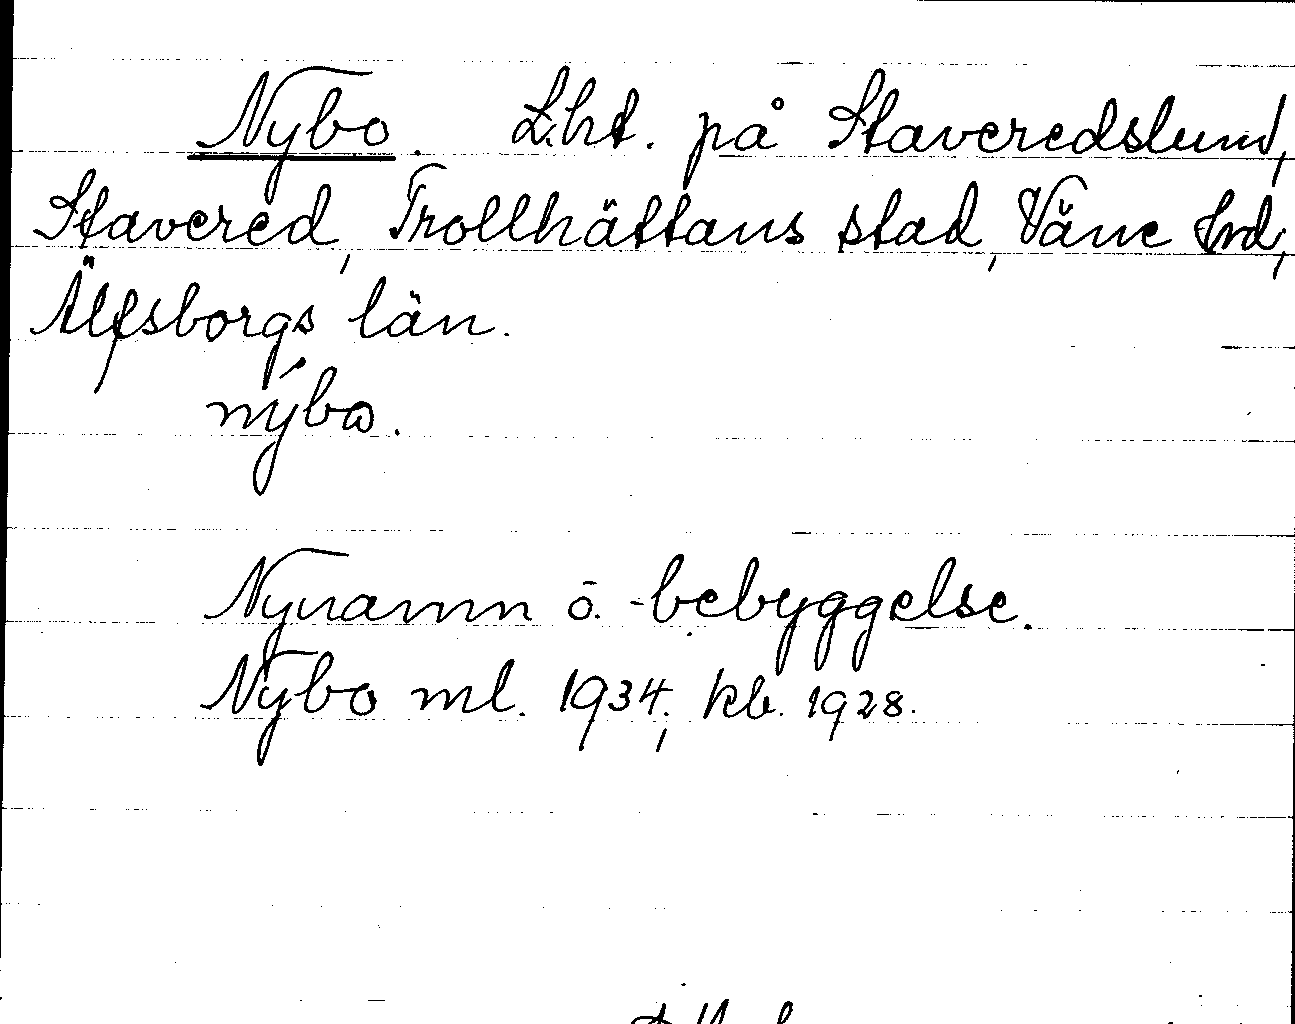 Nybo. Lht. på Staveredslund,
Stavered, Trollhättans stad, Väne hrd,
Älfsborgs län.
nýbo.
Nynamn o. -bebyggelse.
Nybo ml. 1934; kb. 1928.